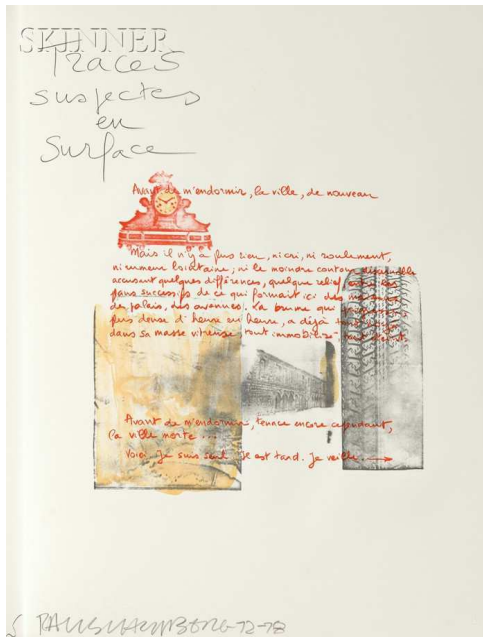 SKINNER
Traces
suspectes
en
surface
Avant de m'endormir, la ville, de nouveau
Mais il n'y a plus rien, ni cri, ni roulement,
ni rumeur lointaine, ni le moindre contour discernable
accusant quelques différences, quelque relief, entre les
plans successifs de ce qui formait ici des maisons,
des palais, des avenues. La brume qui
plus dense d'heure en heure, a déjà
dans sa masse vitreuse, tout immobilisé, tout éteint.
Avant de m'endormir, tenace encore cependant,
la ville morte ...
Voici. Je suis seul. Il est tard. Je veille.
RAUSCHENBERG 72-78